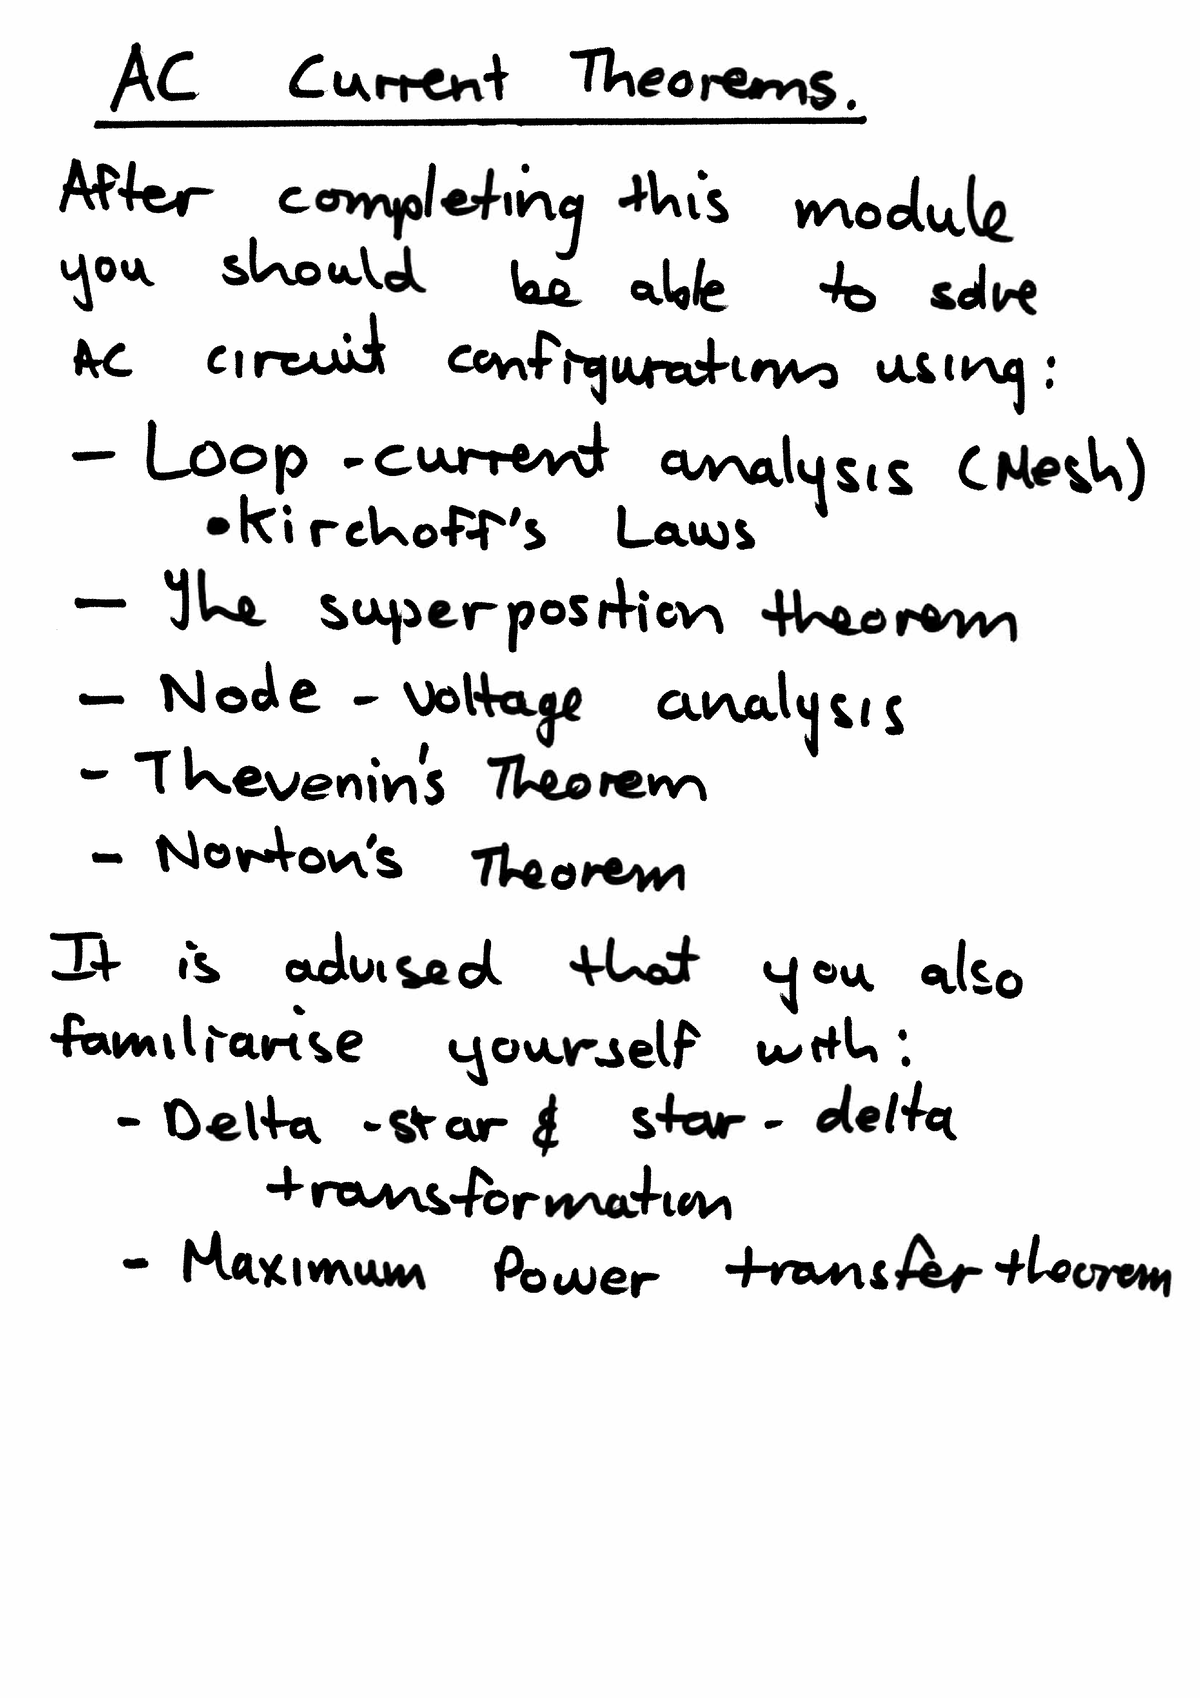 AC Current Theorems.
After completing this module
you should be able to solve
AC circuit configurations using:
- Loop - current analysis (Mesh)
• Kirchoff's Laws
- The superposition theorem
- Node - voltage analysis
- Thevenin's Theorem
- Norton's Theorem
It is advised that you also
familiarise yourself with:
- Delta - star & star - delta
transformation
- Maximum Power transfer theorem